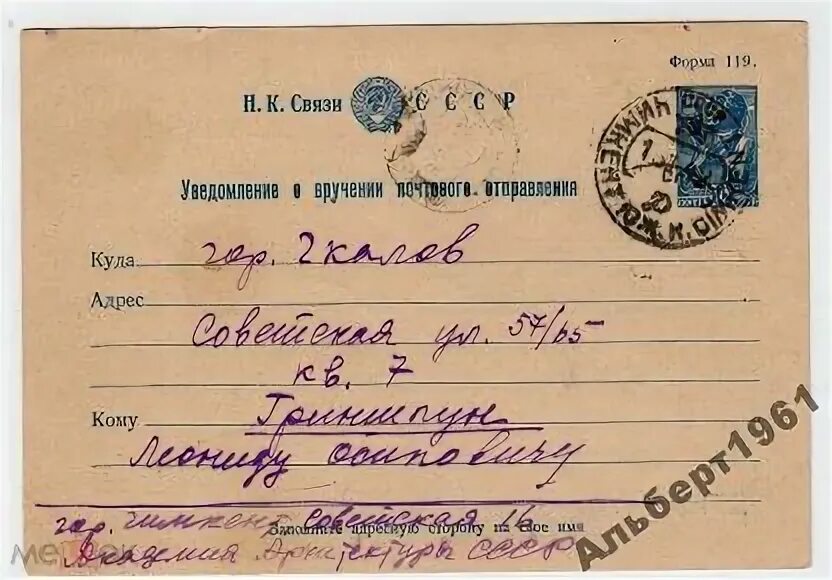 Форма 119.
Н. К. Связи СССР
Уведомление о вручении почтового отправления
Куда гор. Чкалов
Адрес
Советская ул. 57/65
кв. 7
Кому Гриншпун
Леониду Осиповичу
гор. Чимкент Советская
Заполните адресную сторону на свое имя
Академия Архитектуры СССР
Альберт1961